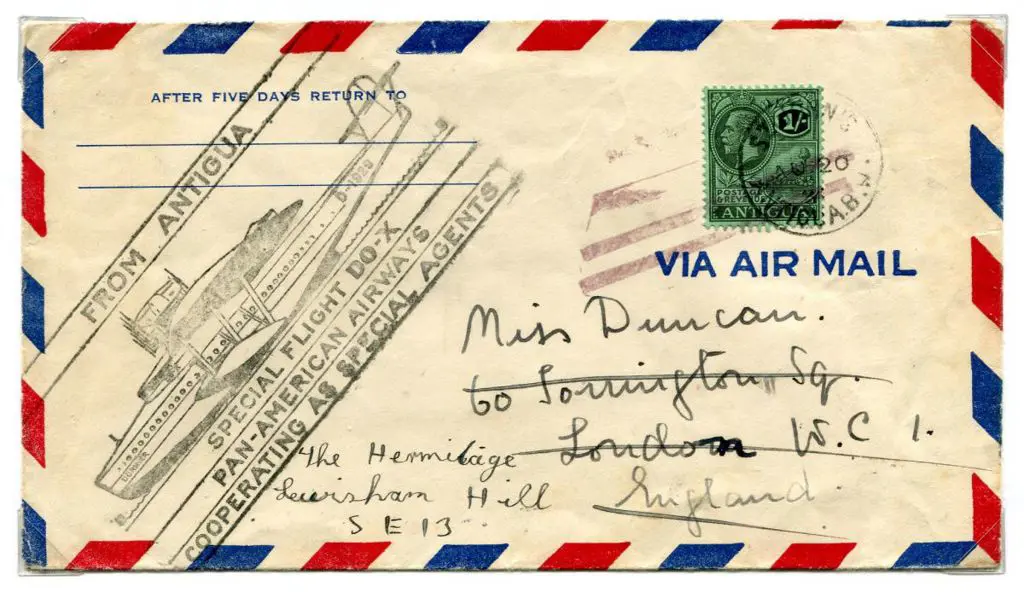 AFTER FIVE DAYS RETURN TO
FROM ANTIGUA
D-1929
DORNIER
SPECIAL FLIGHT DO-X
PAN-AMERICAN AIRWAYS
COOPERATING AS SPECIAL AGENTS
1/-
POSTAGE
& REVENUE
ANTIGUA
20
VIA AIR MAIL
Miss Duncan.
60 Torrington Sq.
London W.C 1.
England.
The Hermitage
Lewisham Hill
S E 13